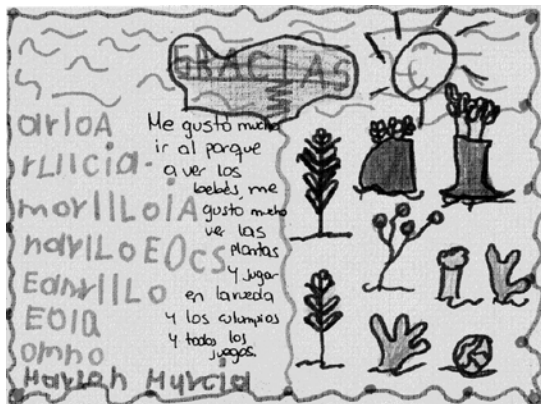 GRACIAS
arloA
rLUcia-
morllLoiA
narilLoEOcs
EanrillLo
EOla
omno
Mariah Murcia
Me gustó mucho
ir al parque
a ver los
bebés, me
gusto mucho
ver las
plantas
y jugar
en la rueda
y los columpios
y todos los
juegos.